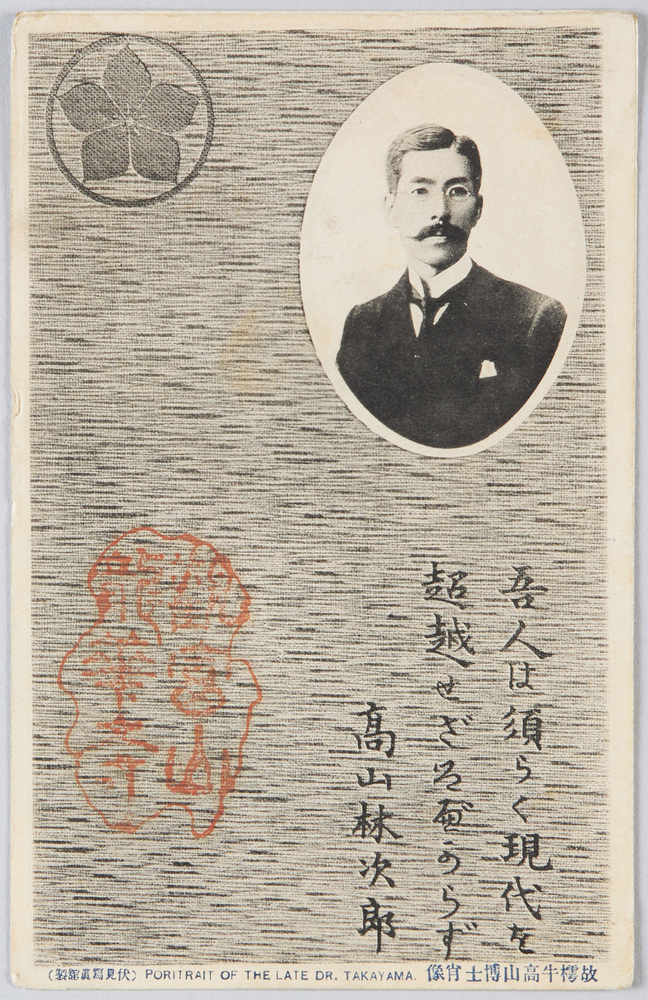 吾人は須らく現代を
超越せざるべからず
高山林次郎
故樗牛高山博士肖像 PORITRAIT OF THE LATE DR. TAKAYAMA. (伏見寫眞館製)